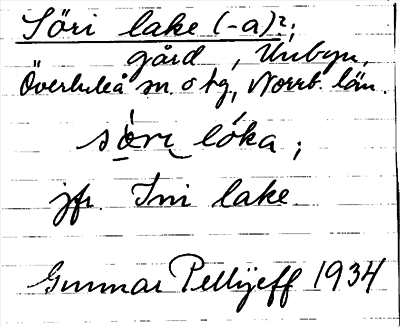 Söri lake (-a)?;
gård, Unbyn,
Överluleå sn. o tg, Norrb. län.
sȯ̀ri lóka;
jfr. Ini lake.
Gunnar Pellijeff 1934